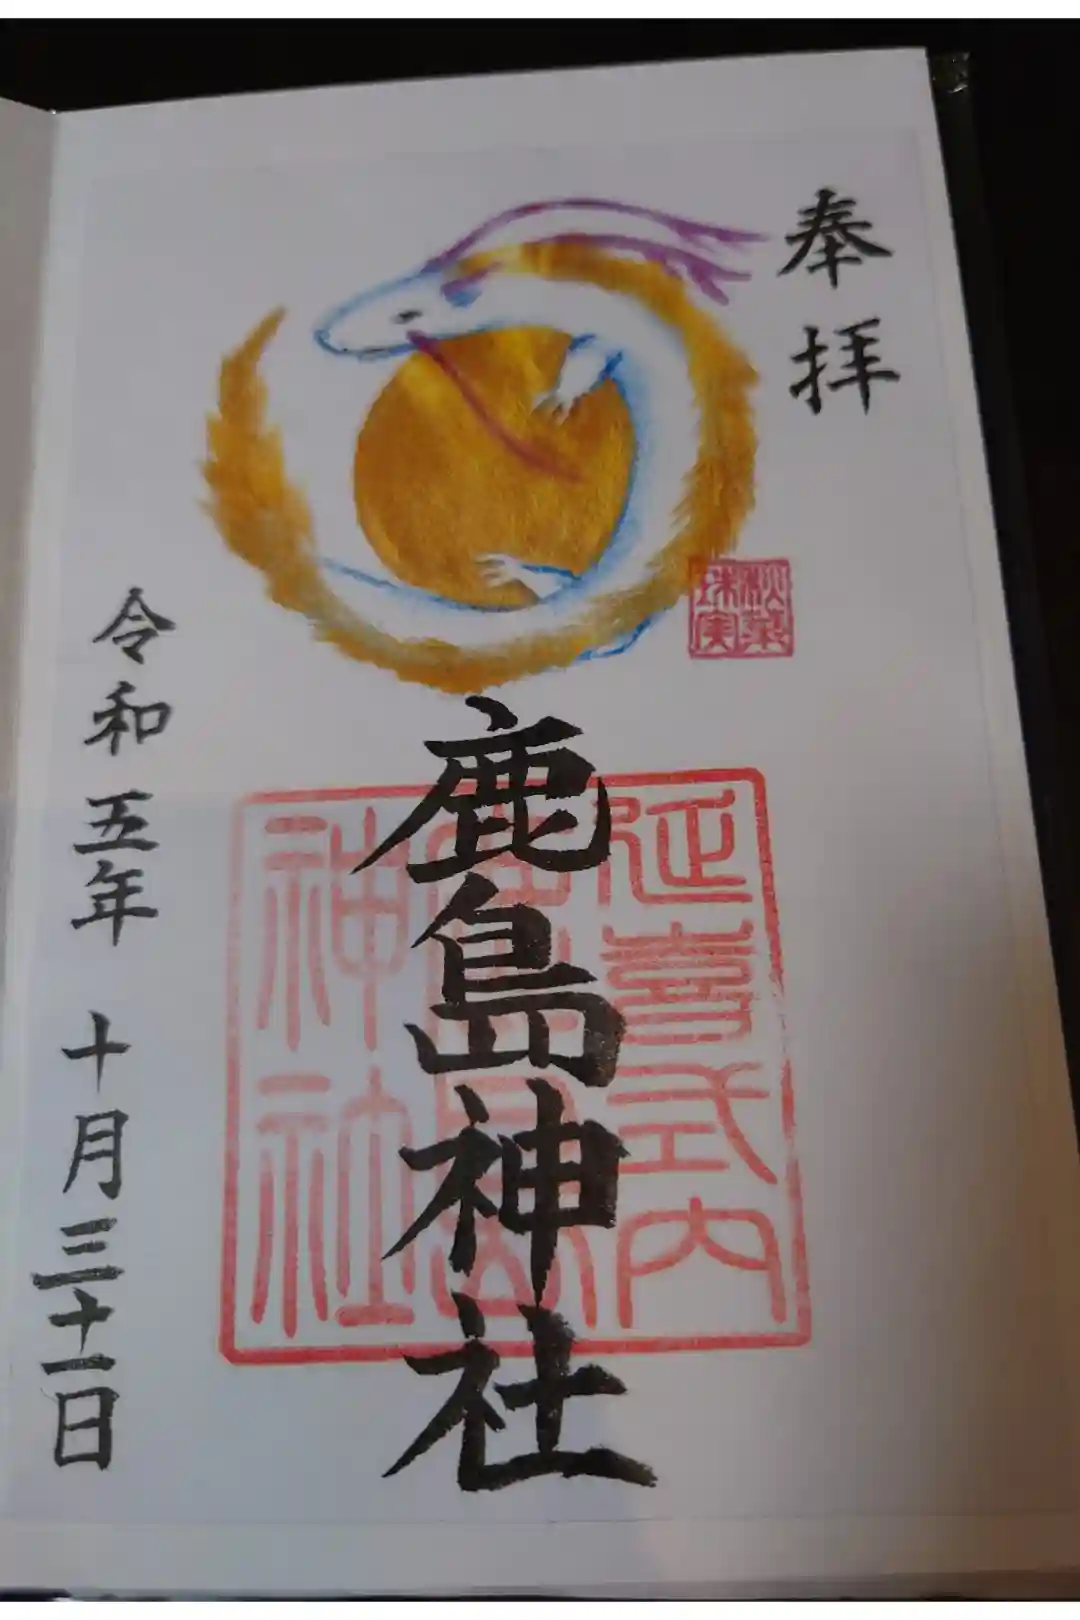 奉拝
秋葉
珠実
鹿島神社
延喜式内
神社
令和五年 十月三十一日